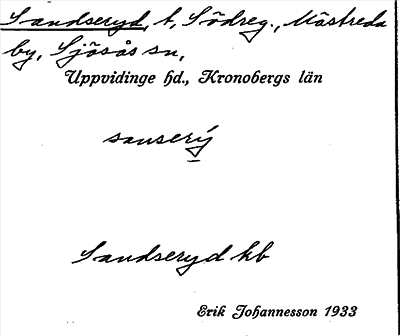 Sandseryd, t, Södreg., Mästreda
by, Sjösås sn,
Uppvidinge hd., Kronobergs län
sanserý
Sandseryd kb
Erik Johannesson 1933